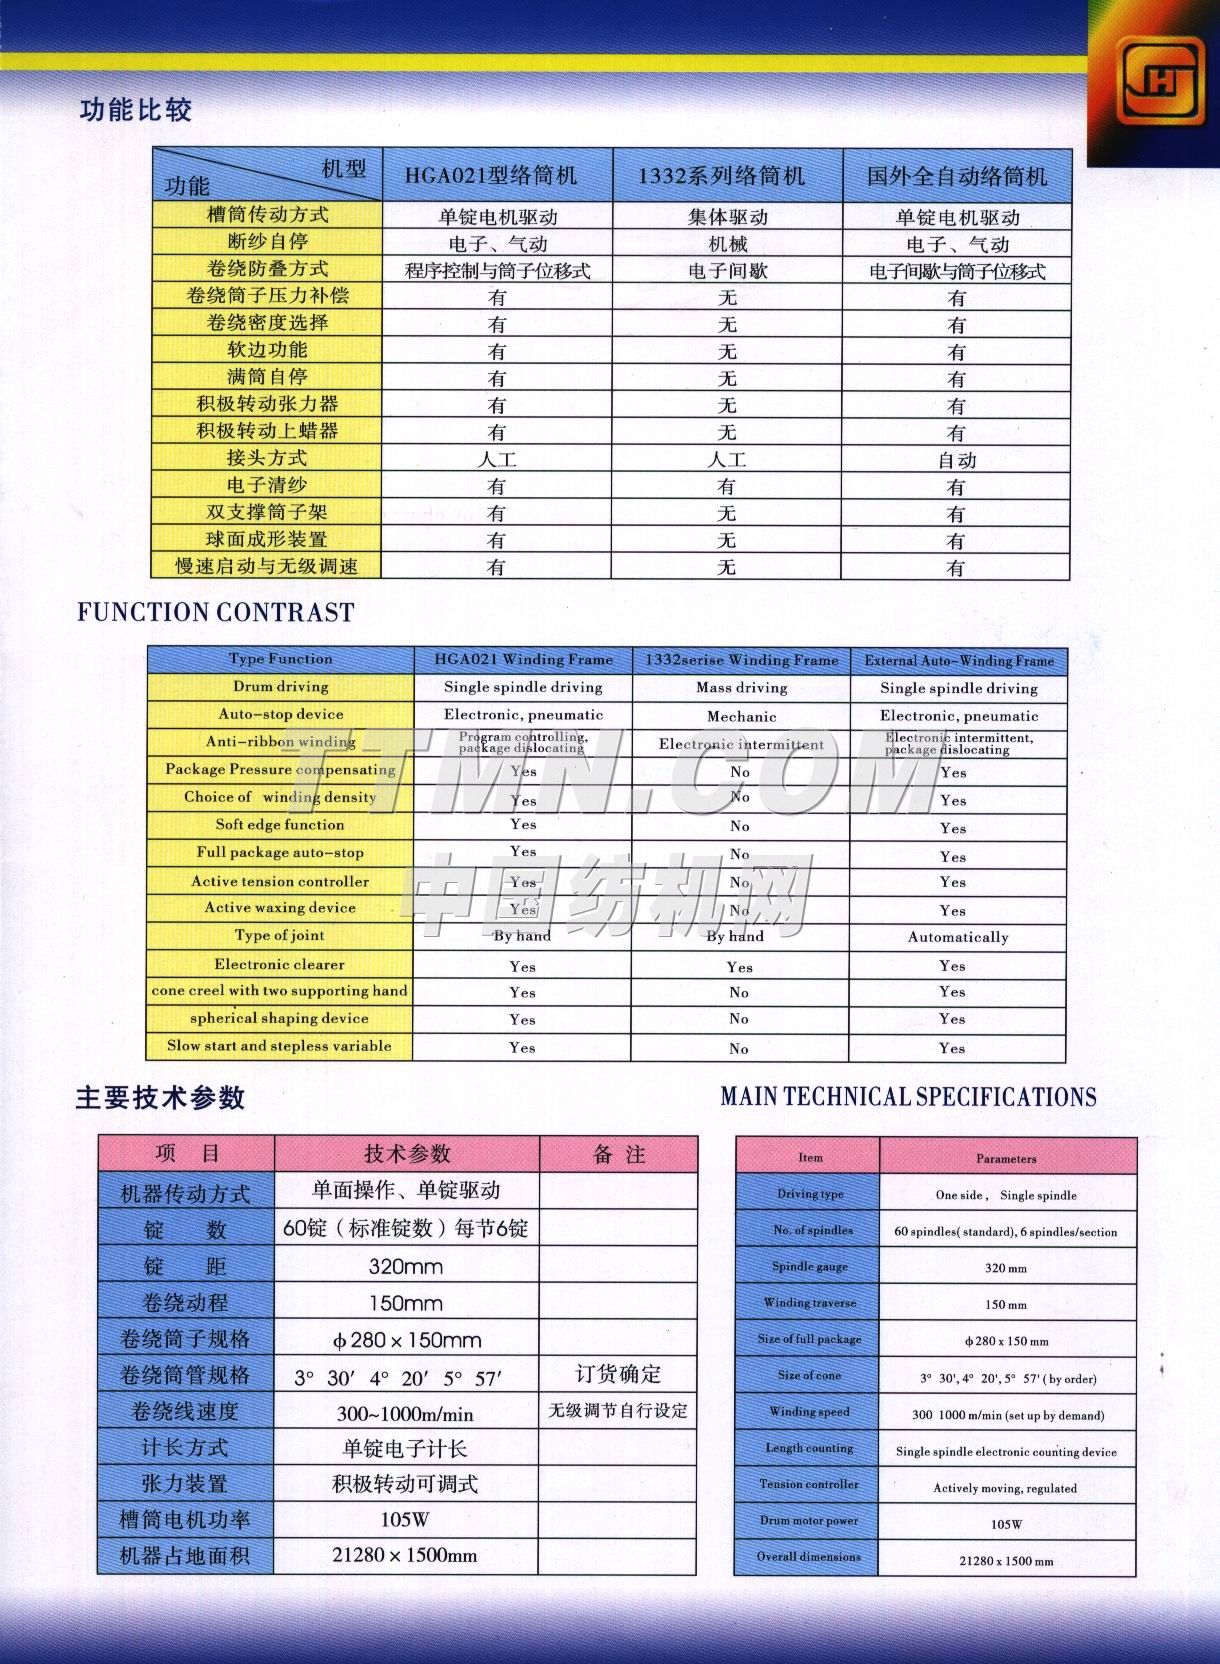 功能比较
机型
功能 HGA021型络筒机 1332系列络筒机 国外全自动络筒机
槽筒传动方式 单锭电机驱动 集体驱动 单锭电机驱动
断纱自停 电子、气动 机械 电子、气动
卷绕防叠方式 程序控制与筒子位移式 电子间歇 电子间歇与筒子位移式
卷绕筒子压力补偿 有 无 有
卷绕密度选择 有 无 有
软边功能 有 无 有
满筒自停 有 无 有
积极转动张力器 有 无 有
积极转动上蜡器 有 无 有
接头方式 人工 人工 自动
电子清纱 有 有 有
双支撑筒子架 有 无 有
球面成形装置 有 无 有
慢速启动与无级调速 有 无 有
FUNCTION CONTRAST
Type Function HGA021 Winding Frame 1332serise Winding Frame External Auto-Winding Frame
Drum driving Single spindle driving Mass driving Single spindle driving
Auto-stop device Electronic, pneumatic Mechanic Electronic, pneumatic
Anti-ribbon winding Program controlling, package dislocating Electronic intermittent Electronic intermittent, package dislocating
Package Pressure compensating Yes No Yes
Choice of winding density Yes No Yes
Soft edge function Yes No Yes
Full package auto-stop Yes No Yes
Active tension controller Yes No Yes
Active waxing device Yes No Yes
Type of joint By hand By hand Automatically
Electronic clearer Yes Yes Yes
cone creel with two supporting hand Yes No Yes
spherical shaping device Yes No Yes
Slow start and stepless variable Yes No Yes
TTMN.COM
中国纺机网
主要技术参数
项 目 技术参数 备 注
机器传动方式 单面操作、单锭驱动
锭 数 60锭（标准锭数）每节6锭
锭 距 320mm
卷绕动程 150mm
卷绕筒子规格 φ280×150mm
卷绕筒管规格 3° 30′ 4° 20′ 5° 57′ 订货确定
卷绕线速度 300~1000m/min 无级调节自行设定
计长方式 单锭电子计长
张力装置 积极转动可调式
槽筒电机功率 105W
机器占地面积 21280×1500mm
MAIN TECHNICAL SPECIFICATIONS
Item Parameters
Driving type One side, Single spindle
No. of spindles 60 spindles( standard), 6 spindles/section
Spindle gauge 320 mm
Winding traverse 150 mm
Size of full package φ280 x 150 mm
Size of cone 3° 30', 4° 20', 5° 57' ( by order)
Winding speed 300 1000 m/min (set up by demand)
Length counting Single spindle electronic counting device
Tension controller Actively moving, regulated
Drum motor power 105W
Overall dimensions 21280 x 1500 mm